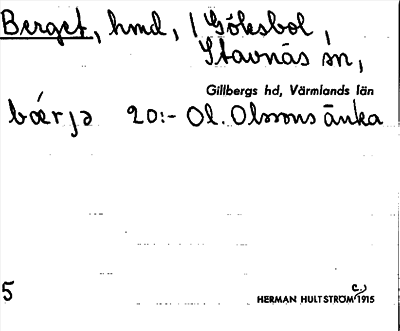 Berget, hmd, / Göksbol,
Stavnäs sn,
Gillbergs hd, Värmlands län
bǽrjə 20:- Ol. Olssons änka
5
c.,
HERMAN HULTSTRÖM 1915